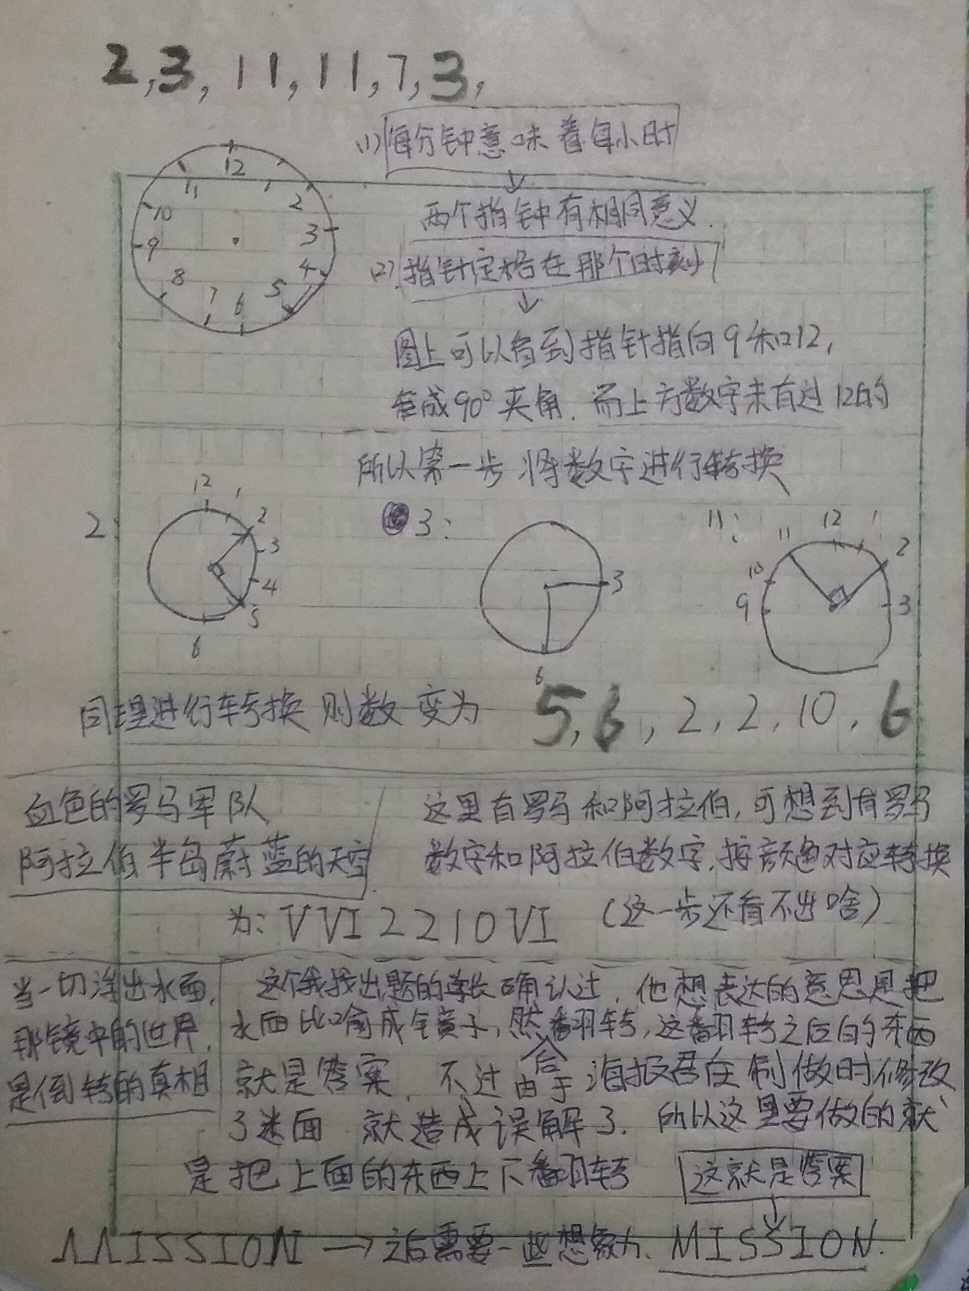 2,3,11,11,7,3,
(1)每分钟意味着每小时
两个指针有相同意义.
(2).指针定格在那个时刻
图上可以看到指针指向9和12,
组成90°夹角.而上方数字未有过12的
所以第一步将数字进行转换
12
11
2
10
3
9
4
8
5
7
6
2:
12
1
2
3
4
5
6
3:
3
6
11:
12
1
11
2
10
9
3
同理进行转换则数变为 5,6,2,2,10,6
血色的罗马军队
阿拉伯半岛蔚蓝的天空
这里有罗马和阿拉伯,可想到有罗马
数字和阿拉伯数字,按颜色对应转换
为:VVI2210VI (这一步还看不出啥)
当一切浮出水面,
那镜中的世界,
是倒转的真相
这个我找出题的学长确认过,他想表达的意思是把
水面比喻成镜子,然后翻转,这翻转之后的东西
就是答案,不过由于海报君在制做时修改
了迷面 就造成误解了.所以这里要做的就
是把上面的东西上下翻转 这就是答案
MISSION → 之后需要一些想象力. MISSION.